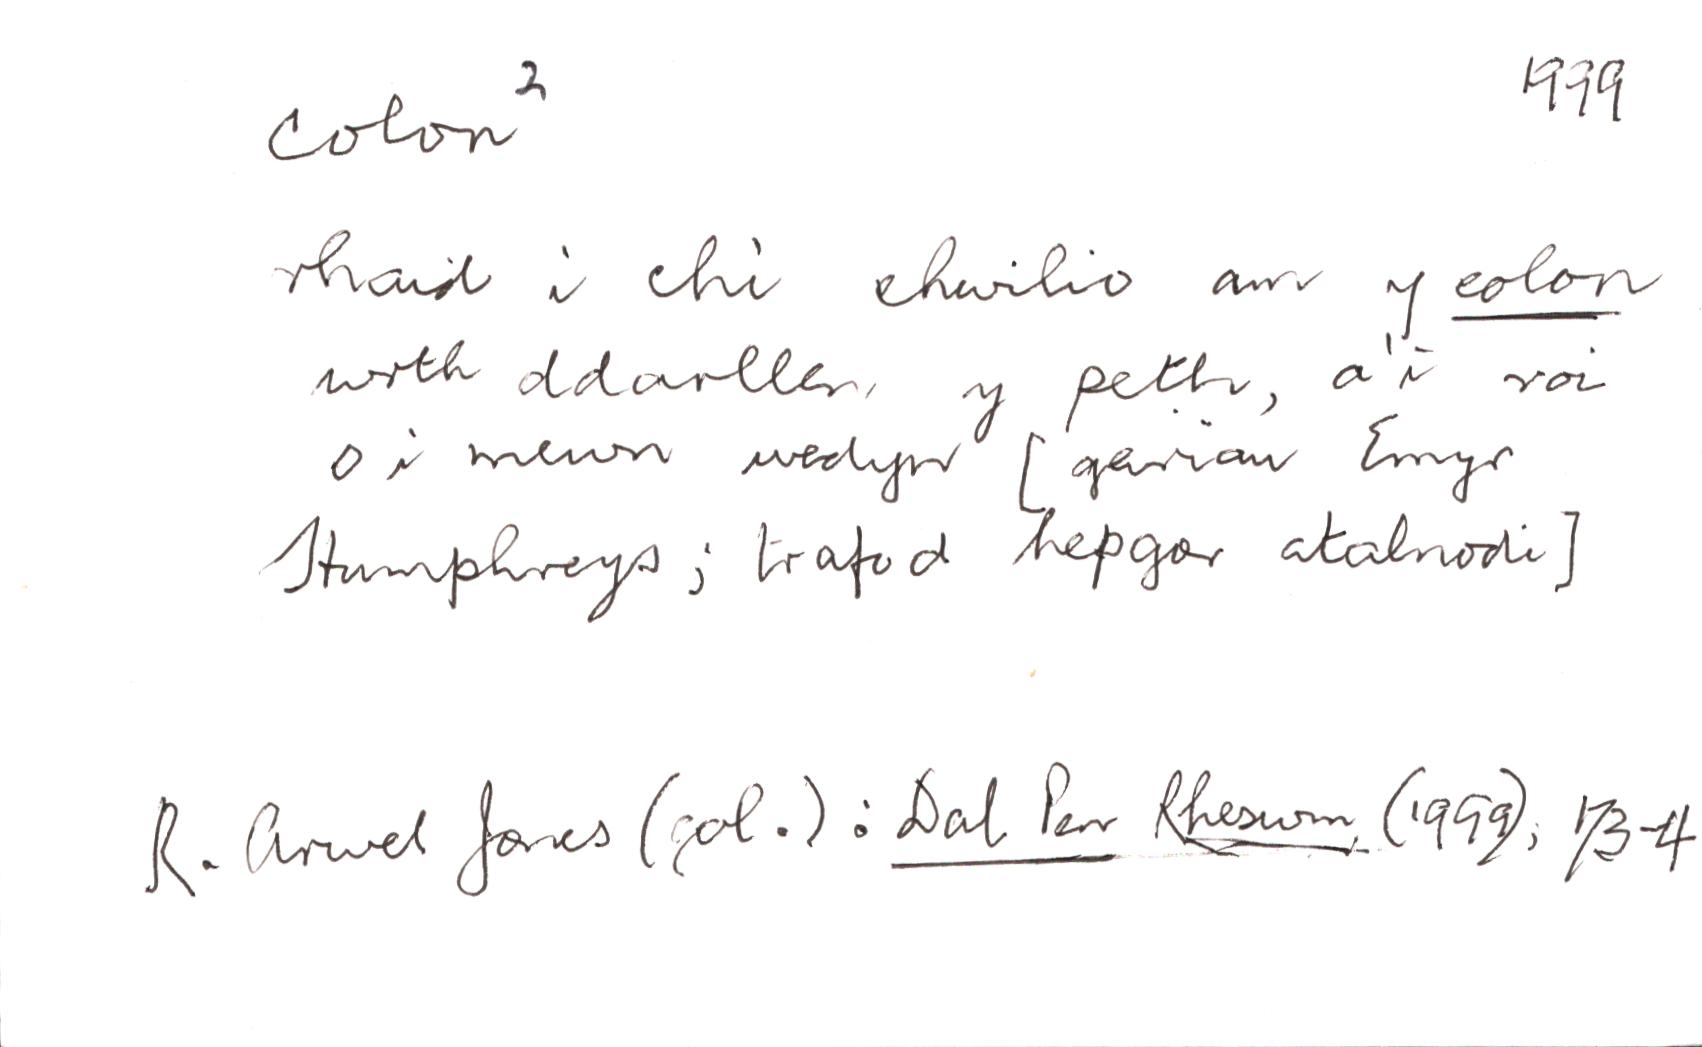 colon² 1999
rhaid i chi chwilio am y colon
wrth ddarllen y peth, a'i roi
o i mewn wedyn [geiriau Emyr
Humphreys; trafod hepgor atalnodi]
R. Arwel Jones (gol.): Dal Pen Rheswm (1999), 173-4